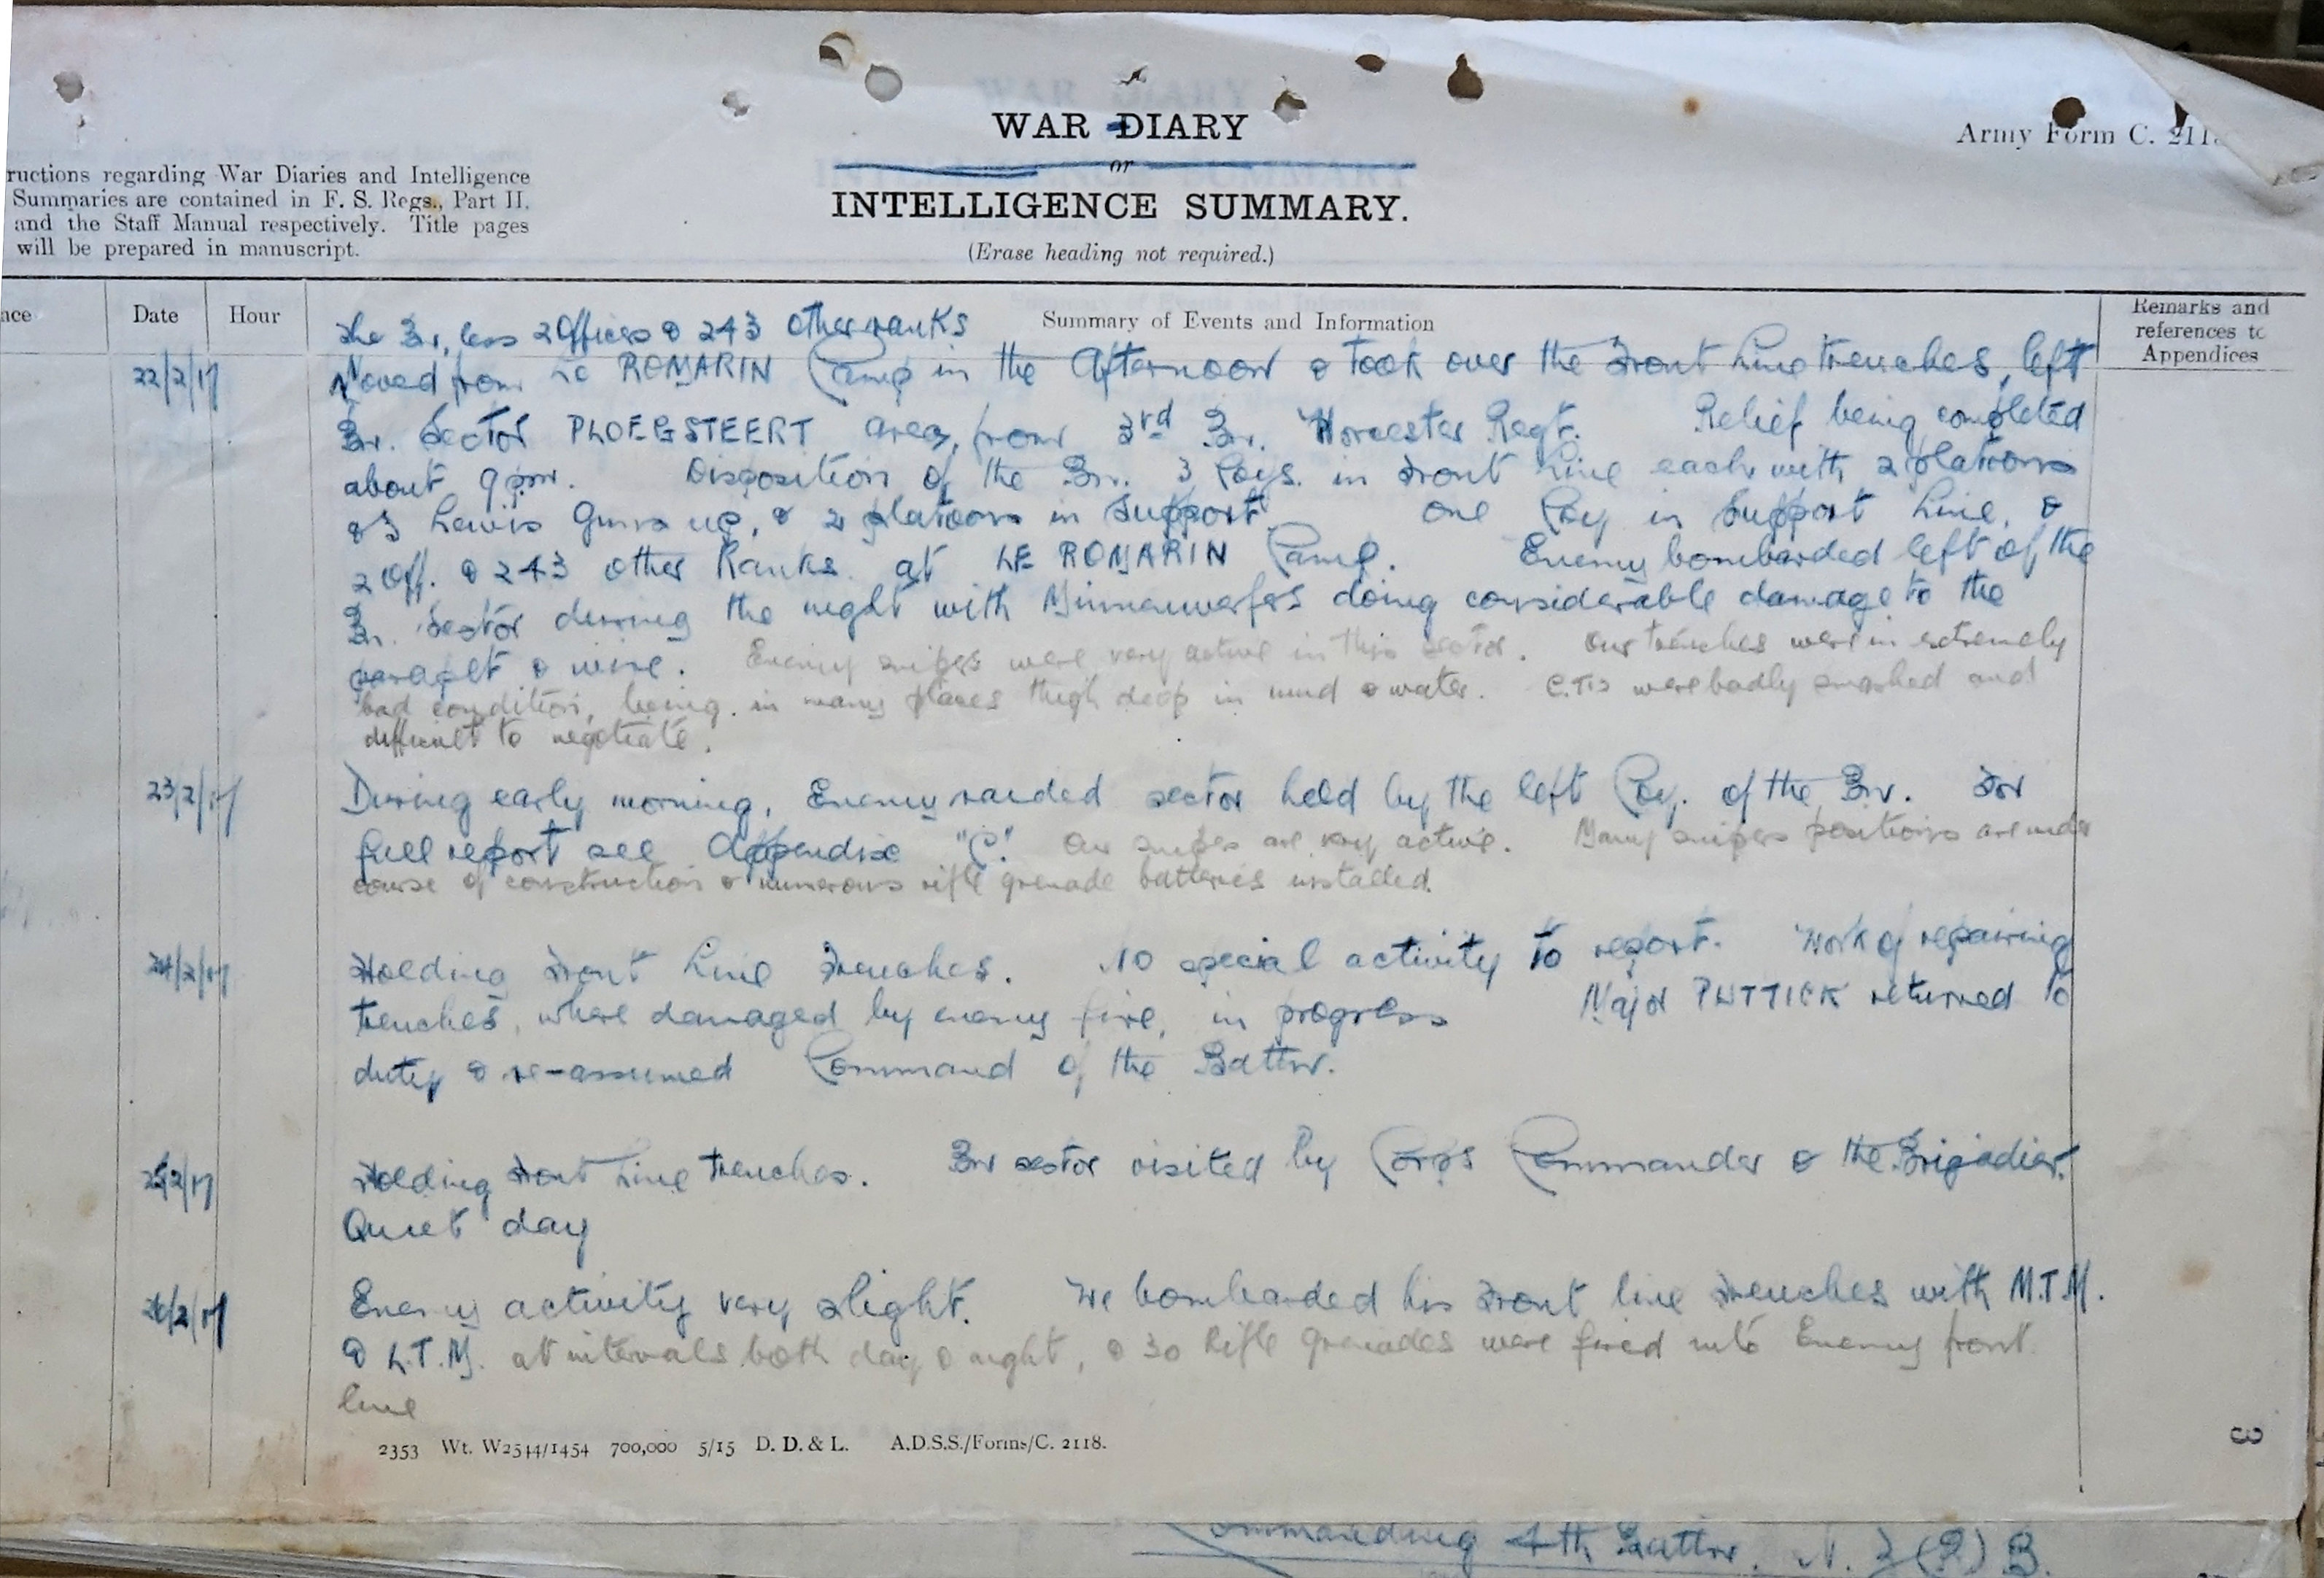 WAR DIARY
or
INTELLIGENCE SUMMARY.
(Erase heading not required.)
Army Form C. 211
ructions regarding War Diaries and Intelligence
Summaries are contained in F. S. Regs., Part II.
and the Staff Manual respectively. Title pages
will be prepared in manuscript.
ace Date Hour Summary of Events and Information Remarks and
references to
Appendices
The Bn, less 2 Officers & 243 other ranks
22/2/17 Moved from LE ROMARIN Camp in the Afternoon & took over the Front Line trenches, left
Bn. Sector PLOEGSTEERT area, from 3rd Bn. Worcester Regt. Relief being completed
about 9 pm. Disposition of the Bn. 3 Coys. in Front Line each with 2 platoons
& 3 Lewis Guns up, & 2 platoons in Support. One Coy in Support Line, &
2 Off. & 243 other Ranks at LE ROMARIN Camp. Enemy bombarded left of the
Bn. Sector during the night with Minnenwerfers doing considerable damage to the
parapet & wire. Enemy snipers were very active in this sector. Our trenches were in extremely
bad condition, being in many places thigh deep in mud & water. C.T's were badly smashed and
difficult to negotiate.
23/2/17 During early morning, Enemy raided sector held by the left Coy. of the Bn. For
full report see Appendix "C". Our snipers are very active. Many snipers positions are under
course of construction & numerous rifle grenade batteries installed.
24/2/17 Holding Front Line Trenches. No special activity to report. Work of repairing
trenches, where damaged by enemy fire, in progress Major PUTTICK returned to
duty & re-assumed Command of the Battn.
25/2/17 Holding Front Line trenches. Bn sector visited by Corps Commander & the Brigadier.
Quiet day
26/2/17 Enemy activity very slight. We bombarded his Front line Trenches with M.T.M.
& L.T.M. at intervals both day & night, & 30 Rifle Grenades were fired into Enemy front
line
2353 Wt. W2544/1454 700,000 5/15 D. D. & L. A.D.S.S./Forms/C. 2118.
3
Commanding 4th Battn. N. Z (R) B.